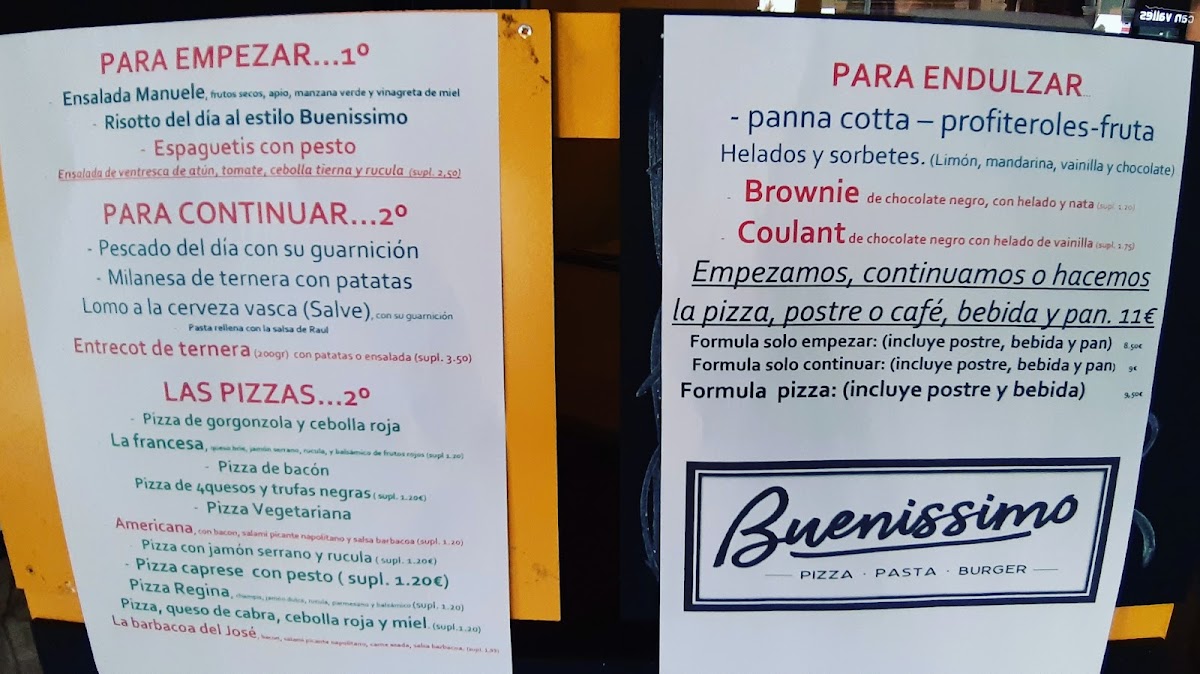 PARA EMPEZAR...1º
Ensalada Manuele, frutos secos, apio, manzana verde y vinagreta de miel
- Risotto del día al estilo Buenissimo
- Espaguetis con pesto
Ensalada de ventresca de atún, tomate, cebolla tierna y rucula (supl. 2,50)
PARA CONTINUAR...2º
- Pescado del día con su guarnición
- Milanesa de ternera con patatas
Lomo a la cerveza vasca (Salve), con su guarnición
Pasta rellena con la salsa de Raul
Entrecot de ternera (200gr) con patatas o ensalada (supl. 3.50)
LAS PIZZAS...2º
- Pizza de gorgonzola y cebolla roja
La francesa, queso brie, jamón serrano, rucula, y balsámico de frutos rojos (supl 1.20)
- Pizza de bacón
Pizza de 4quesos y trufas negras ( supl. 1.20€)
- Pizza Vegetariana
Americana, con bacon, salami picante napolitano y salsa barbacoa (supl. 1.20)
- Pizza con jamón serrano y rucula ( supl. 1.20€)
- Pizza caprese con pesto ( supl. 1.20€)
Pizza Regina, champis, jamón dulce, rucula, parmesano y balsámico (supl. 1.20)
Pizza, queso de cabra, cebolla roja y miel. (supl.1.20)
La barbacoa del José, bacon, salami picante napolitano, carne asada, salsa barbacoa. (supl.
PARA ENDULZAR
- panna cotta – profiteroles-fruta
Helados y sorbetes. (Limón, mandarina, vainilla y chocolate)
- Brownie de chocolate negro, con helado y nata (supl. 1.20)
- Coulant de chocolate negro con helado de vainilla (supl. 1.75)
Empezamos, continuamos o hacemos
la pizza, postre o café, bebida y pan. 11€
Formula solo empezar: (incluye postre, bebida y pan) 8.50€
Formula solo continuar: (incluye postre, bebida y pan) 9€
Formula pizza: (incluye postre y bebida) 9,50€
Buenissimo
PIZZA · PASTA · BURGER
can valles